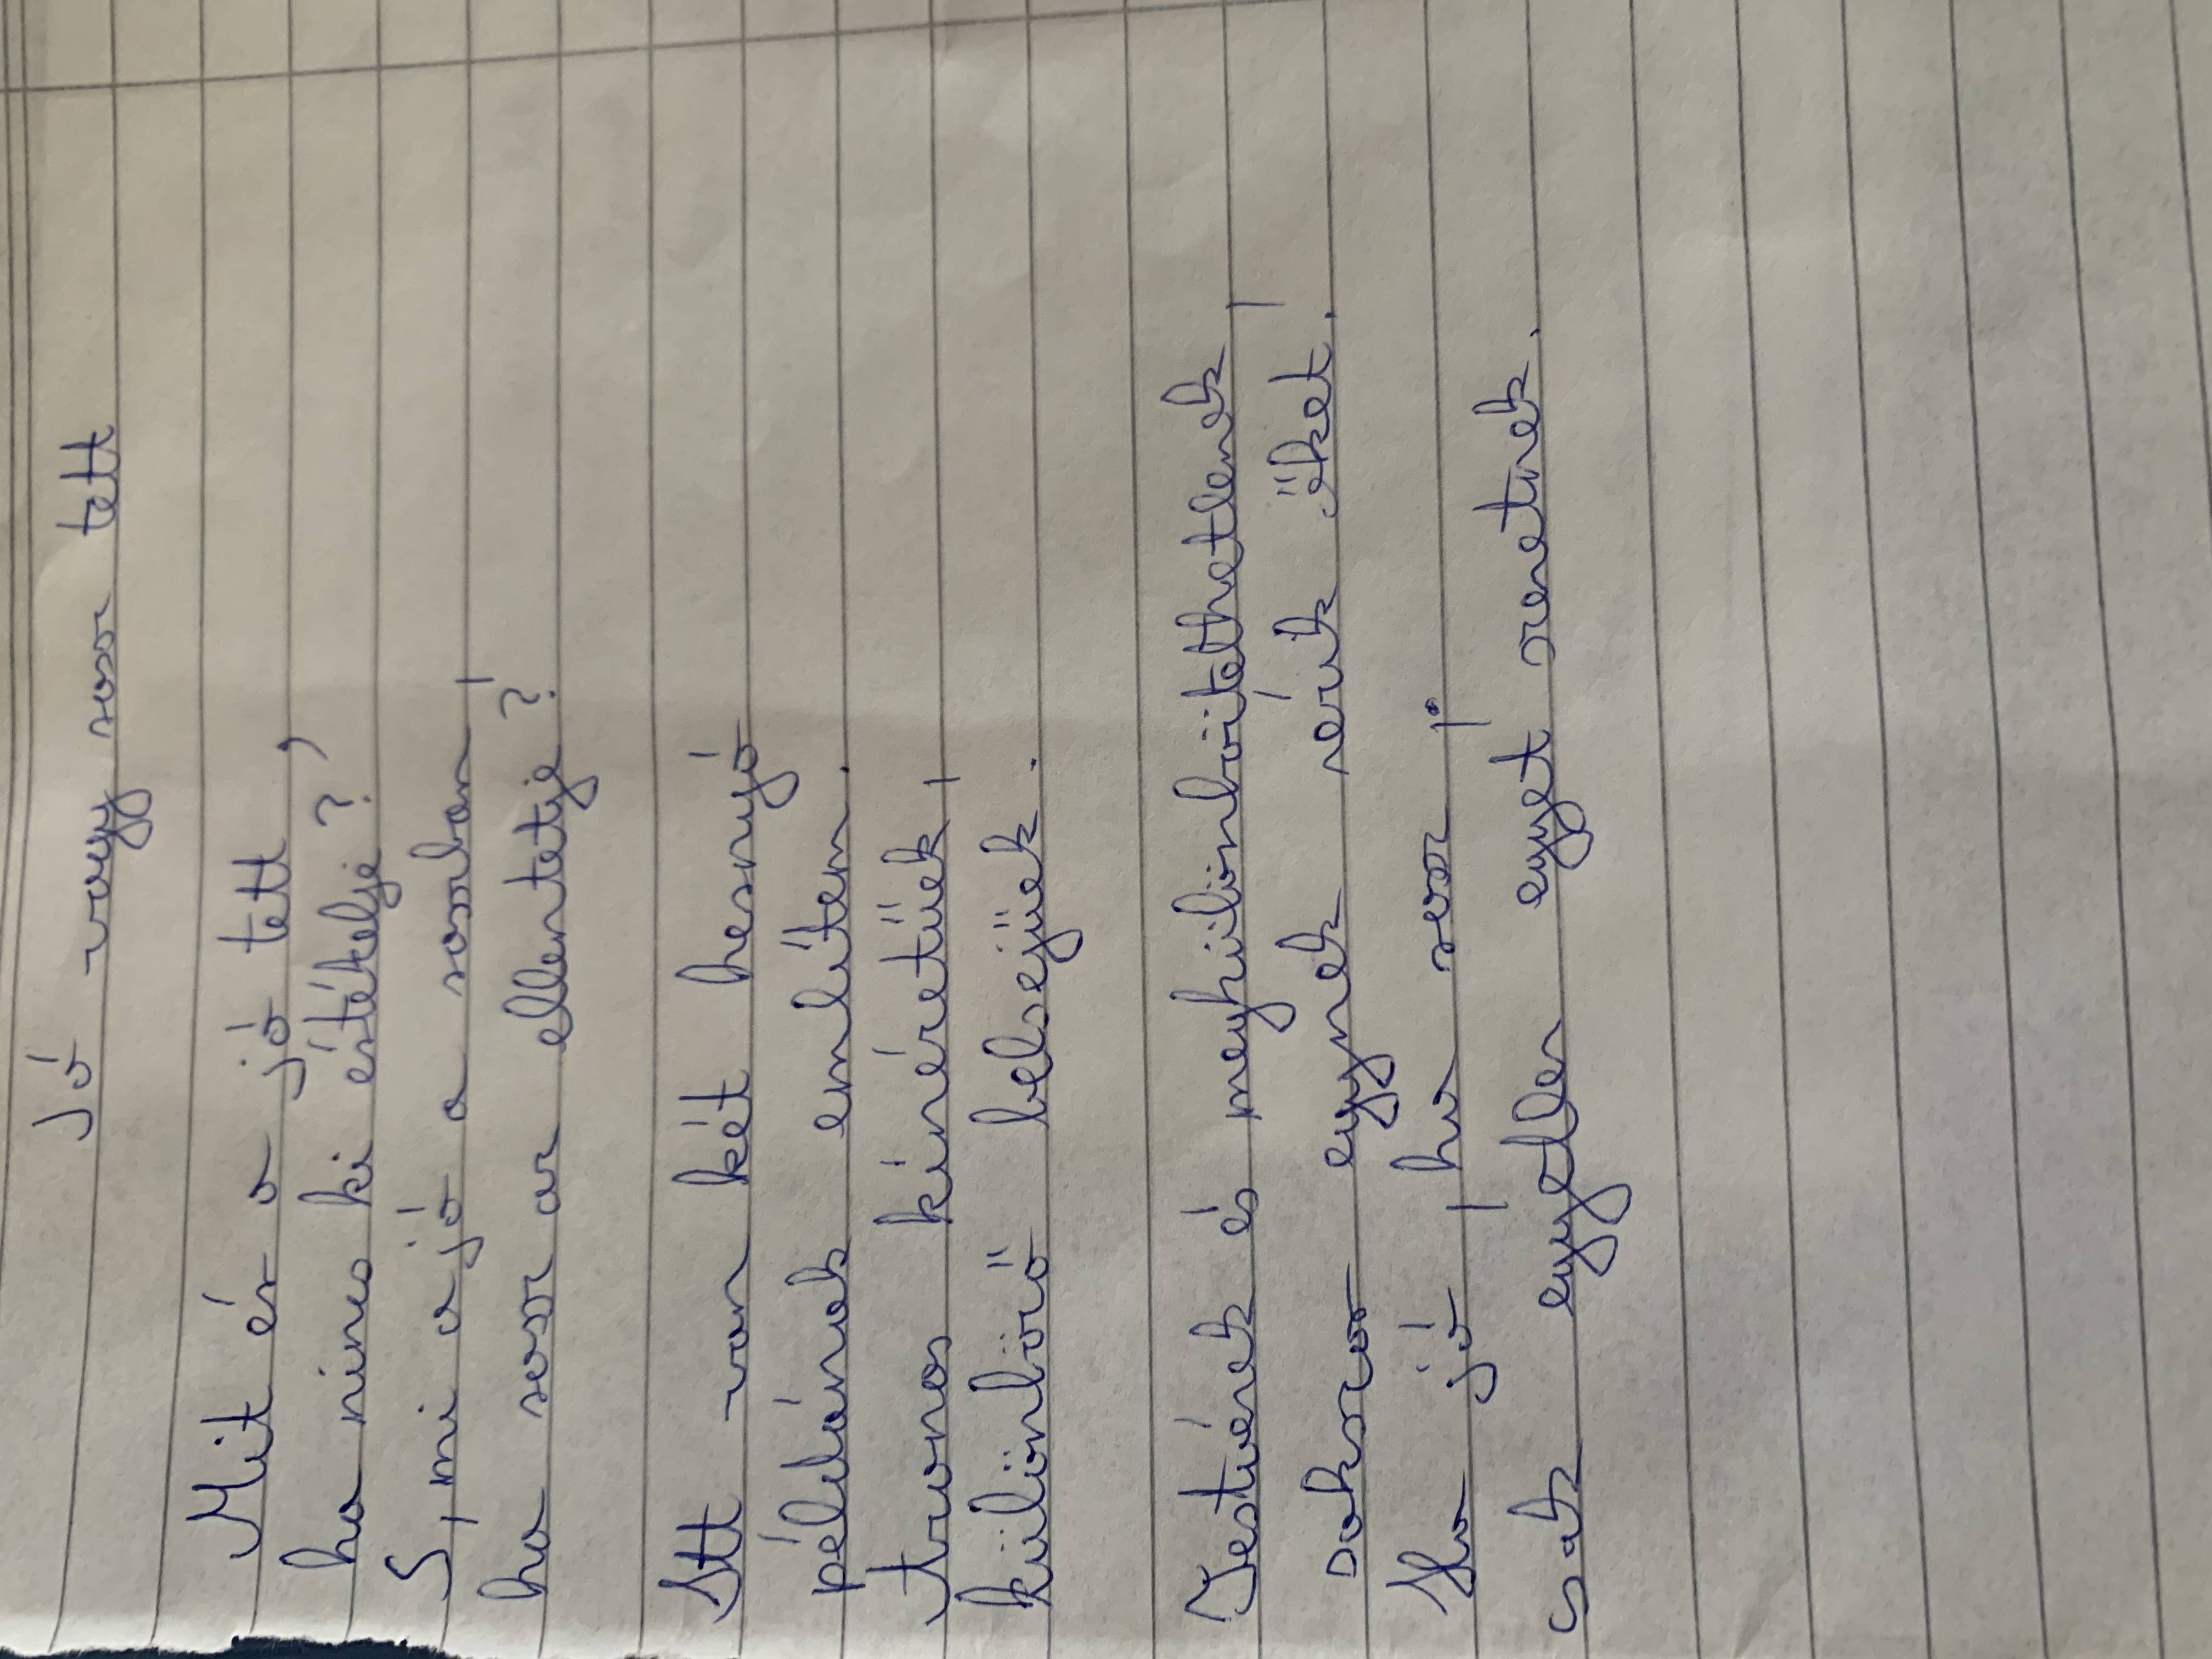 Jó vagy rossz tett
Mit ér a jó tett,
ha nincs ki értékelje?
S, mi a jó a rosszban,
ha rossz az ellentetje?
Itt van két hernyó
példának említem.
Azonos kinézetűek,
különböző belsejűek.
Testvérek és megkülönböztethetetlenek,
sokszor egynek nézik őket.
Ha jó, ha rossz,
csak egyetlen egyet szeretnek.